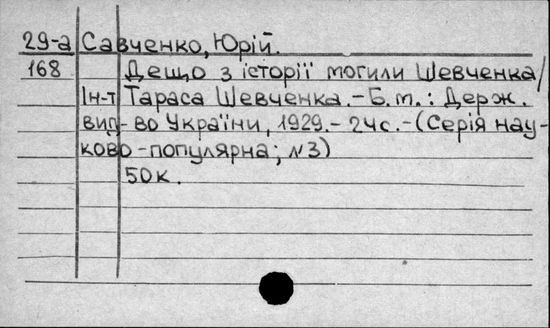 29-а Савченко, Юрій.
168 Дещо з історії могили Шевченка/
Ін-т Тараса Шевченка.-Б.м.: Держ.
вид-во України, 1929.- 24с.-(Серія нау-
ково-популярна; №3)
50к.